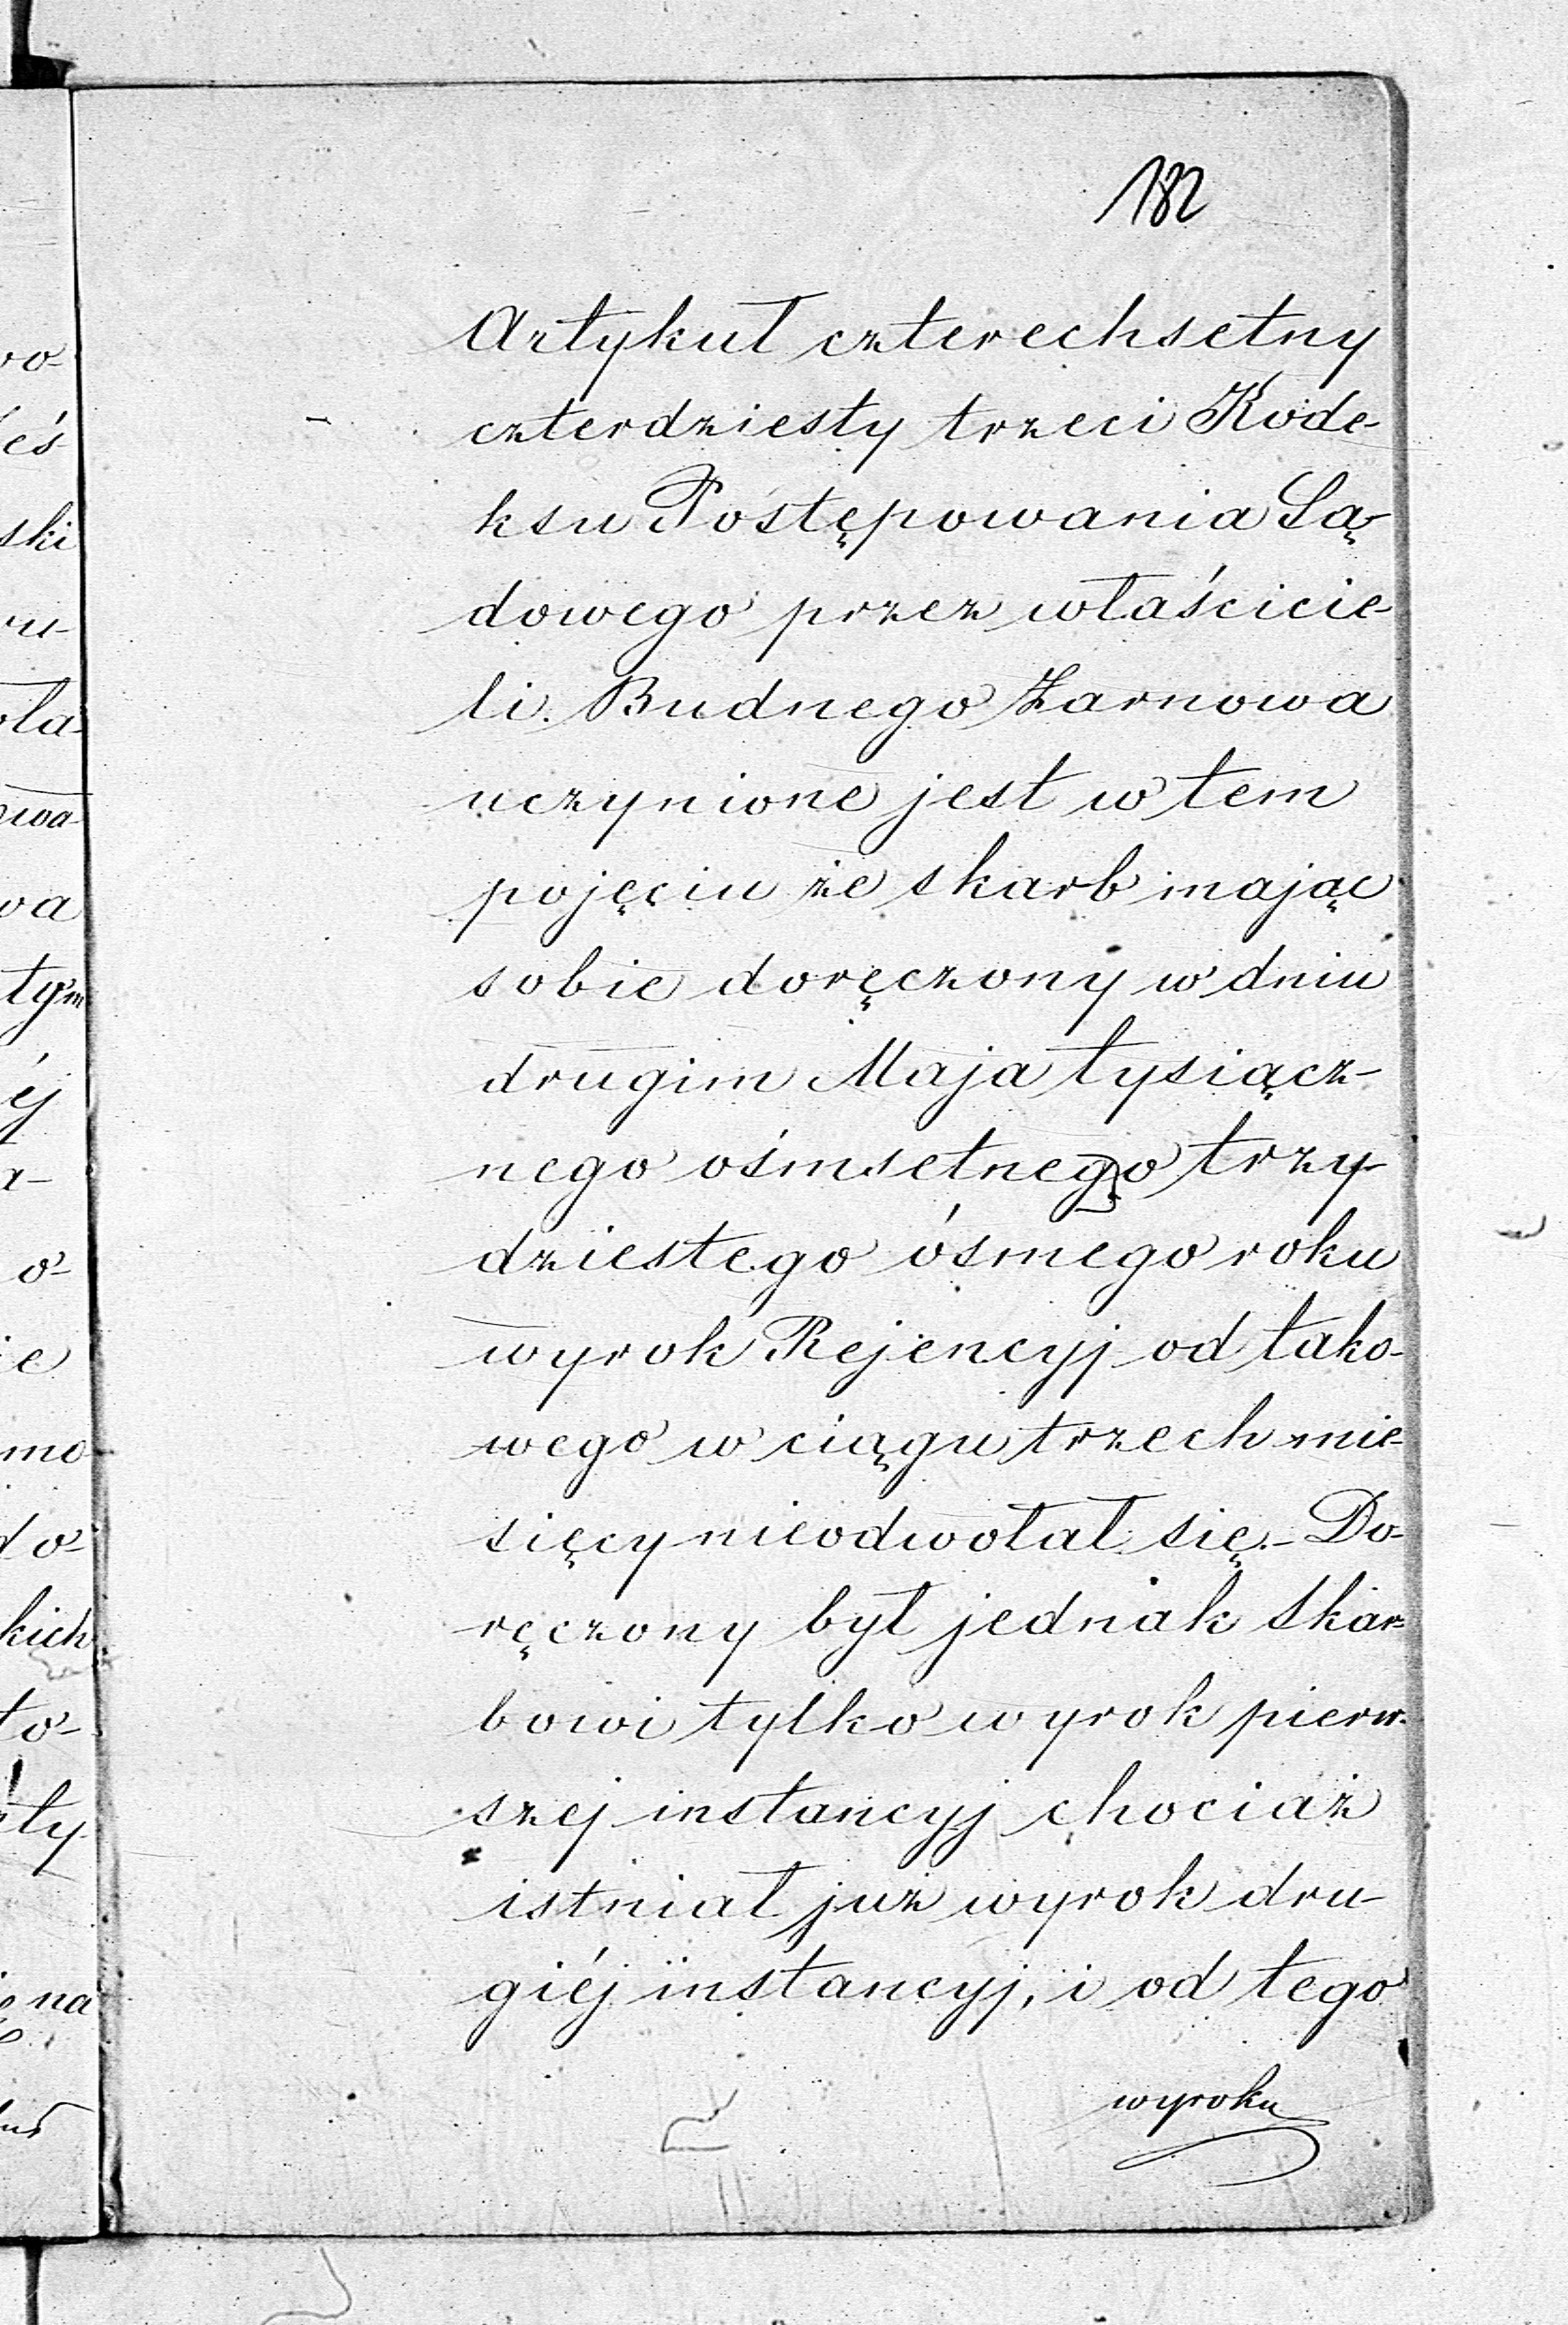 182
Artykuł czterechsetny
czterdziesty trzeci Kode-
ksu Postępowania Są-
dowego przez właścicie-
li Budnego Żarnowa
uczynione jest w tem
pojęciu że skarb mając
sobie doręczony w dniu
drugim Maja tysiącz-
nego ośmsetnego trzy-
dziestego ósmego roku
wyrok Rejencyj od tako-
wego w ciągu trzech mie-
sięcy nieodwołał się.- Do-
ręczony był jednak Skar-
bowi tylko wyrok pierw-
szej instancyj chociaż
istniał już wyrok dru-
giéj instancyj, i od tego
wyroku